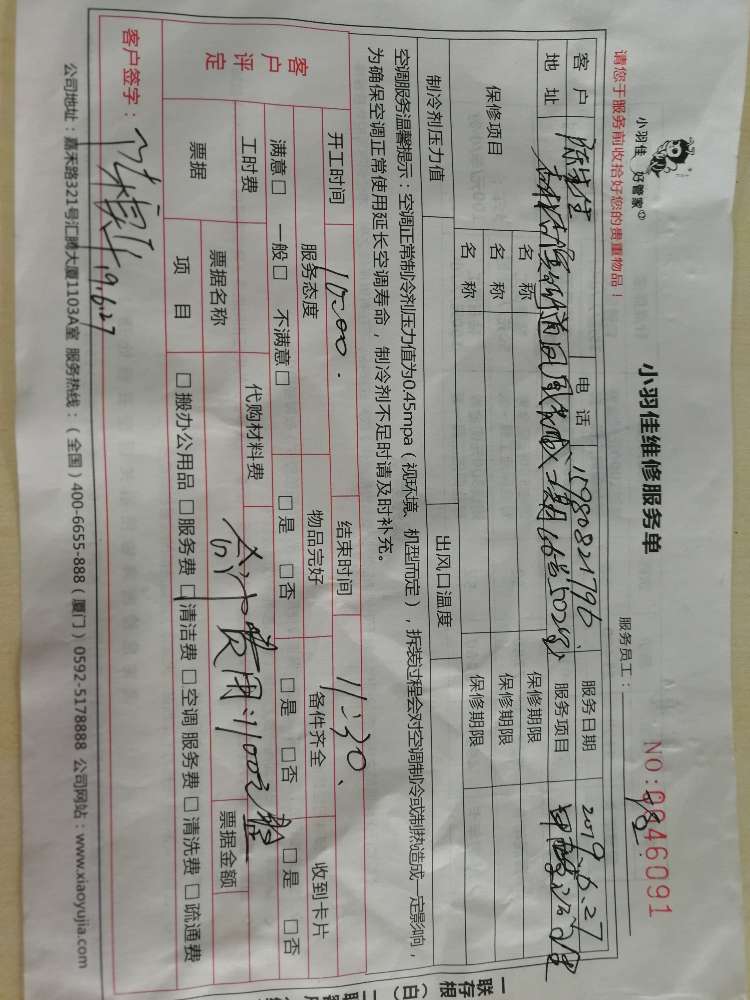 小羽佳 好管家
小羽佳维修服务单
NO:0046091
请您于服务前收拾好您的贵重物品！
服务员工：
客户 陈先生 电话 15980821796 服务日期 2019.6.27
地址 服务项目
保修项目 名称 保修期限
名称 保修期限
名称 保修期限
制冷剂压力值 出风口温度
空调服务温馨提示：空调正常制冷剂压力值为0.45mpa（视环境、机型而定），拆装过程会对空调制冷或制热造成一定影响，
为确保空调正常使用延长空调寿命，制冷剂不足时请及时补充。
客户评定
开工时间 10:00 结束时间 11:30
服务态度 物品完好 备件齐全 收到卡片
满意□ 一般□ 不满意□ □是 □否 □是 □否 □是 □否
工时费 代购材料费 合计费用:1100元整
票据 票据名称 票据金额
项目 □搬办公用品 □服务费 □清洁费 □空调服务费 □清洗费 □疏通费
客户签字： 19.6.27
公司地址：嘉禾路321号汇腾大厦1103A室 服务热线：（全国）400-6655-888（厦门）0592-5178888 公司网站：www.xiaoyujia.com
一联存根（白）